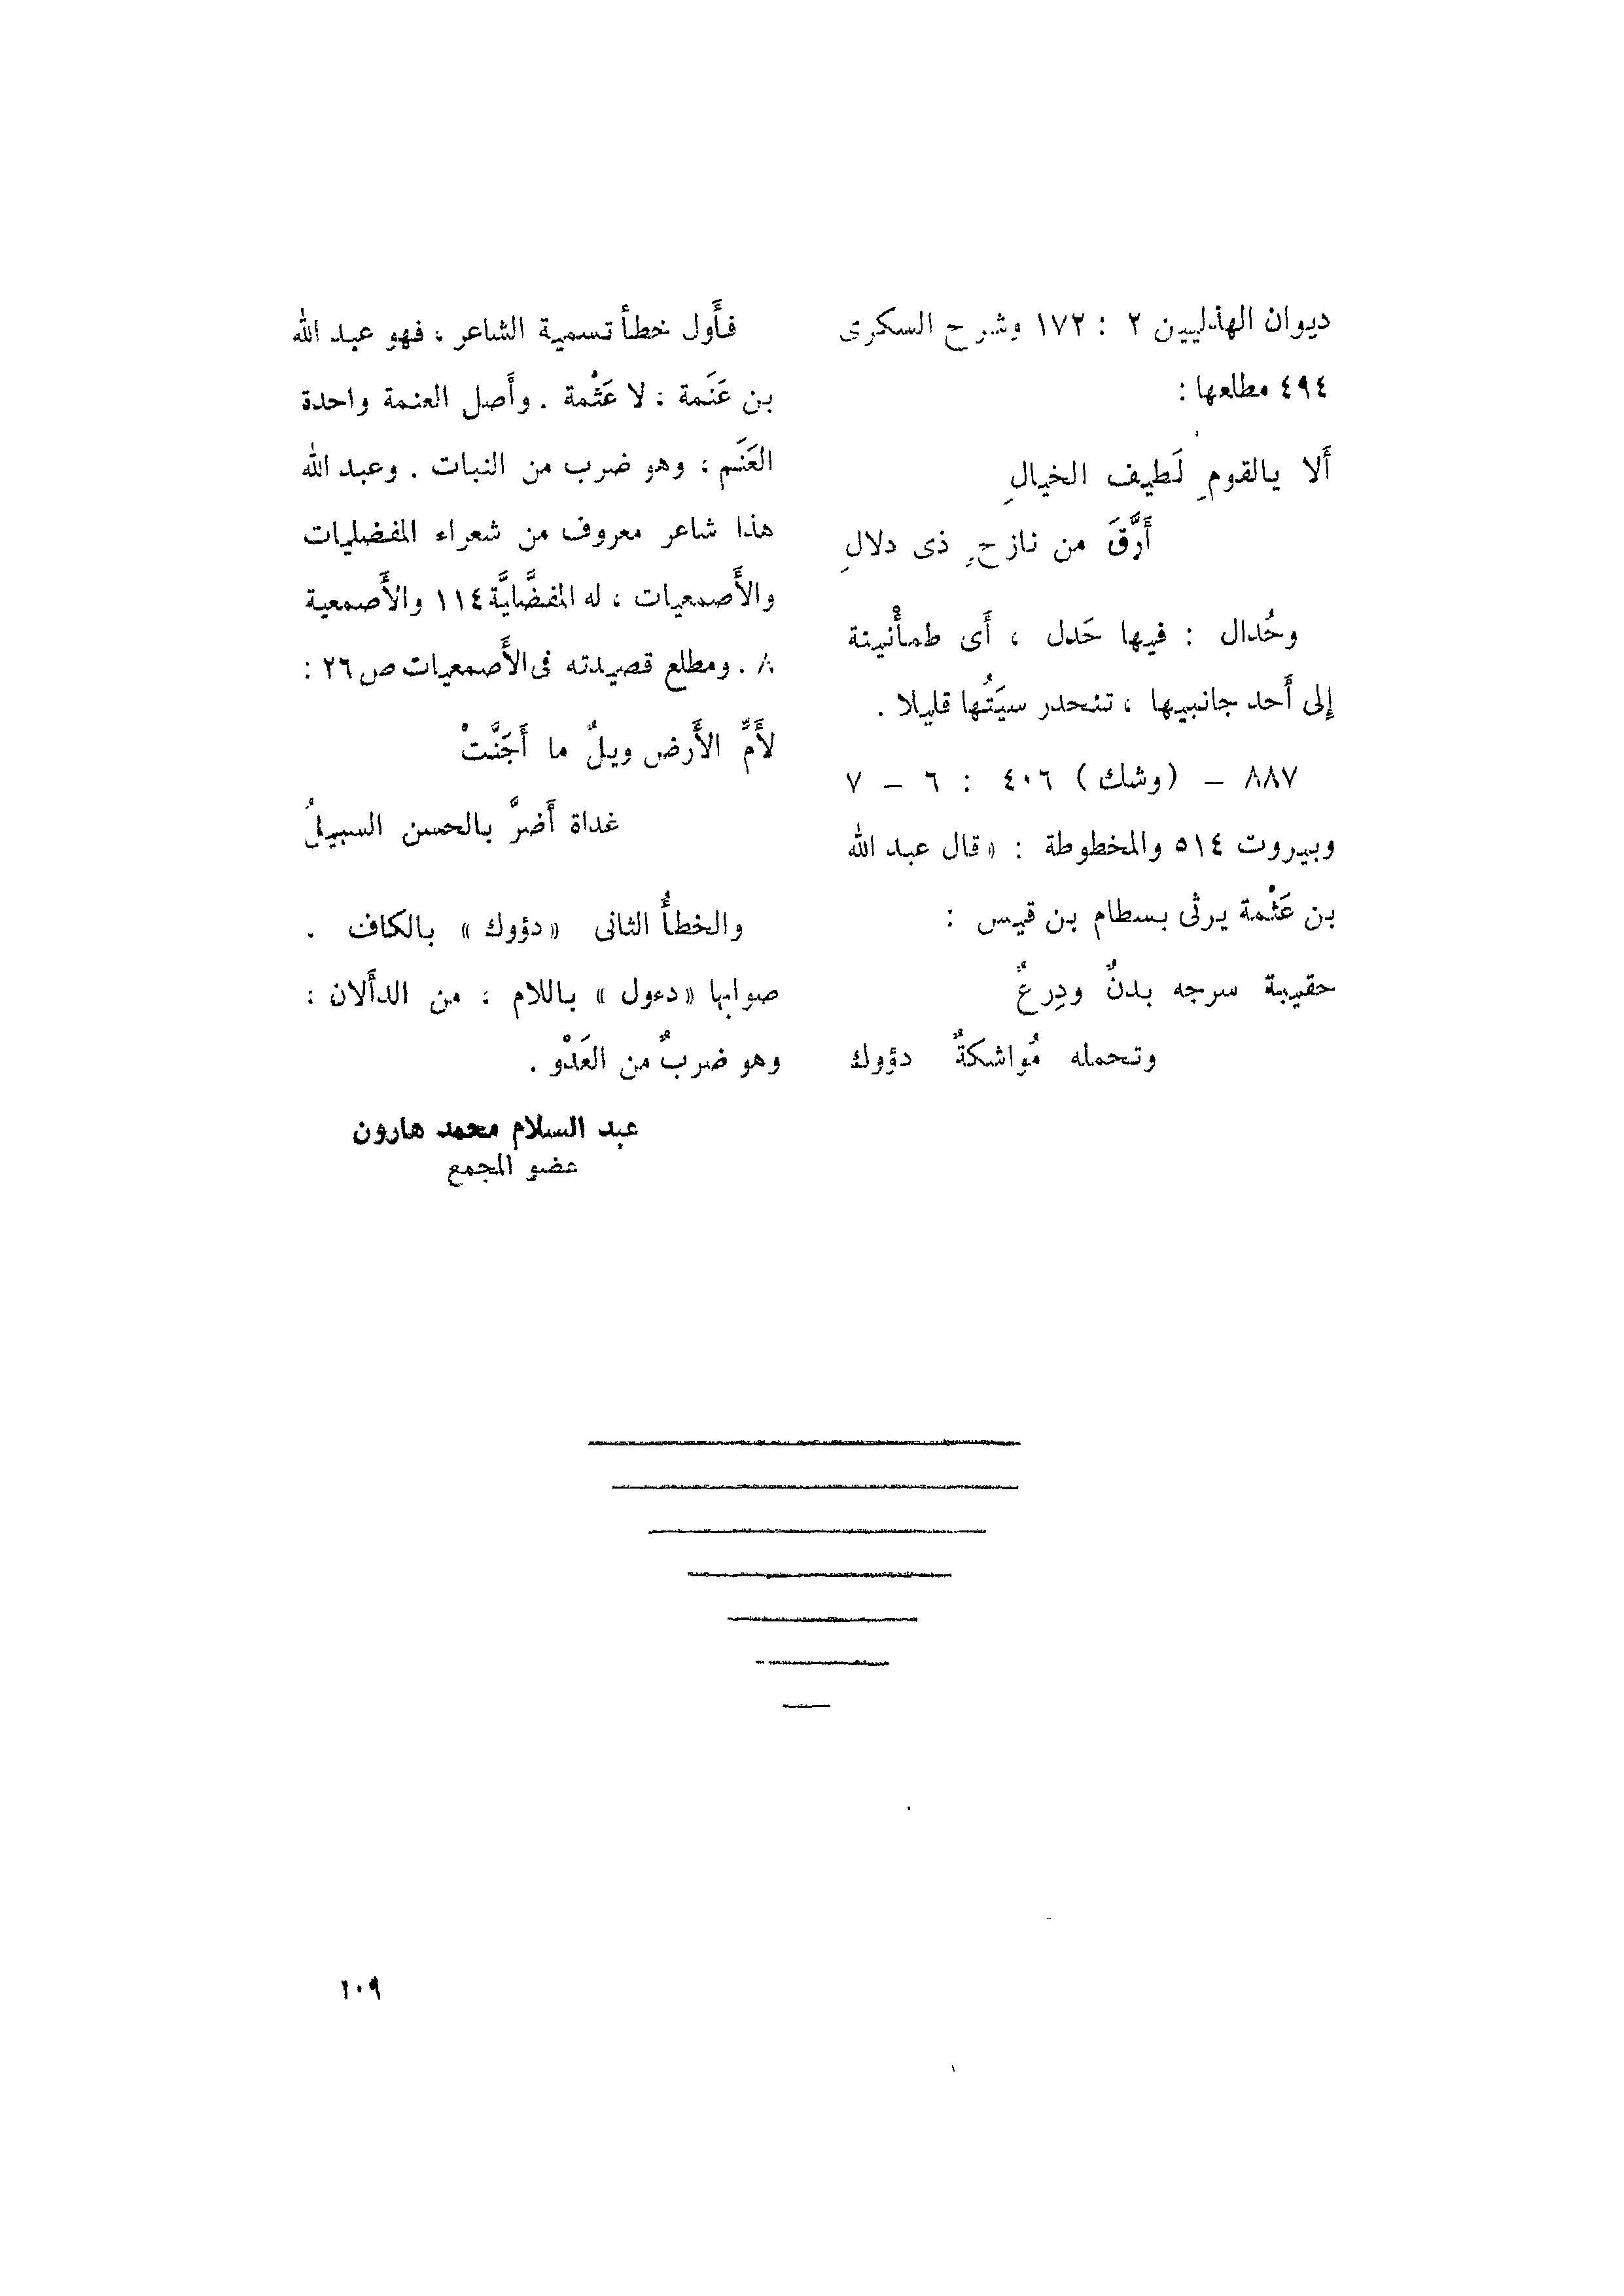 ديوان الهذليين ٢ : ١٧٢ وشرح السكرى
٤٩٤ مطلعها :
أَلا يالقومِ لَطيف الخيالِ
أَرَّقَ من نازحٍ ذى دلالِ
وحُدال : فيها حَدل ، أَى طمأْنينة
إلى أَحد جانبيها ، تنحدر سيَتُها قليلا .
٨٨٧ – (وشك) ٤٠٦ : ٦ – ٧
وبيروت ٥١٤ والمخطوطة : « قال عبد الله
بن عَثْمة يرثى بسطام بن قيس :
حقيبة سرجه بدنٌ ودِرعٌ
وتحمله مُواشكةٌ دؤوك
فأَول خطأ تسمية الشاعر ، فهو عبد الله
بن عَنَمة ، لا عَثْمة . وأَصل العنمة واحدة
العَنَم ، وهو ضرب من النبات . وعبد الله
هذا شاعر معروف من شعراء المفضليات
والأَصمعيات ، له المفضَّليَّة ١١٤ والأَصمعية
٨ . ومطلع قصيدته فى الأَصمعيات ص ٢٦ :
لأَمِّ الأَرض ويلٌ ما أَجَنَّتْ
غداة أَضرَّ بالحسن السبيلُ
والخطأُ الثانى «دؤوك» بالكاف .
صوابها «دءول» باللام ، من الدأَلان :
وهو ضربٌ من العَدْو .
عبد السلام محمد هارون
عضو المجمع
٢٠٩